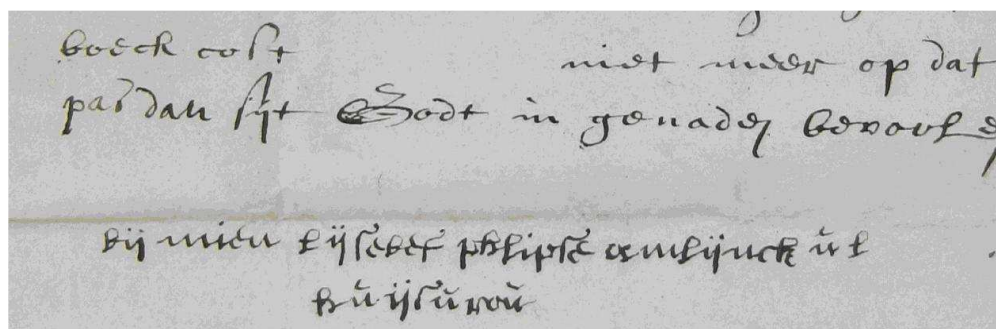 boeck cost niet meer op dat
pas dan sijt Godt in genaden bevoole
bij mien lijsebet phlipse amlijnck u l
huijsvrou